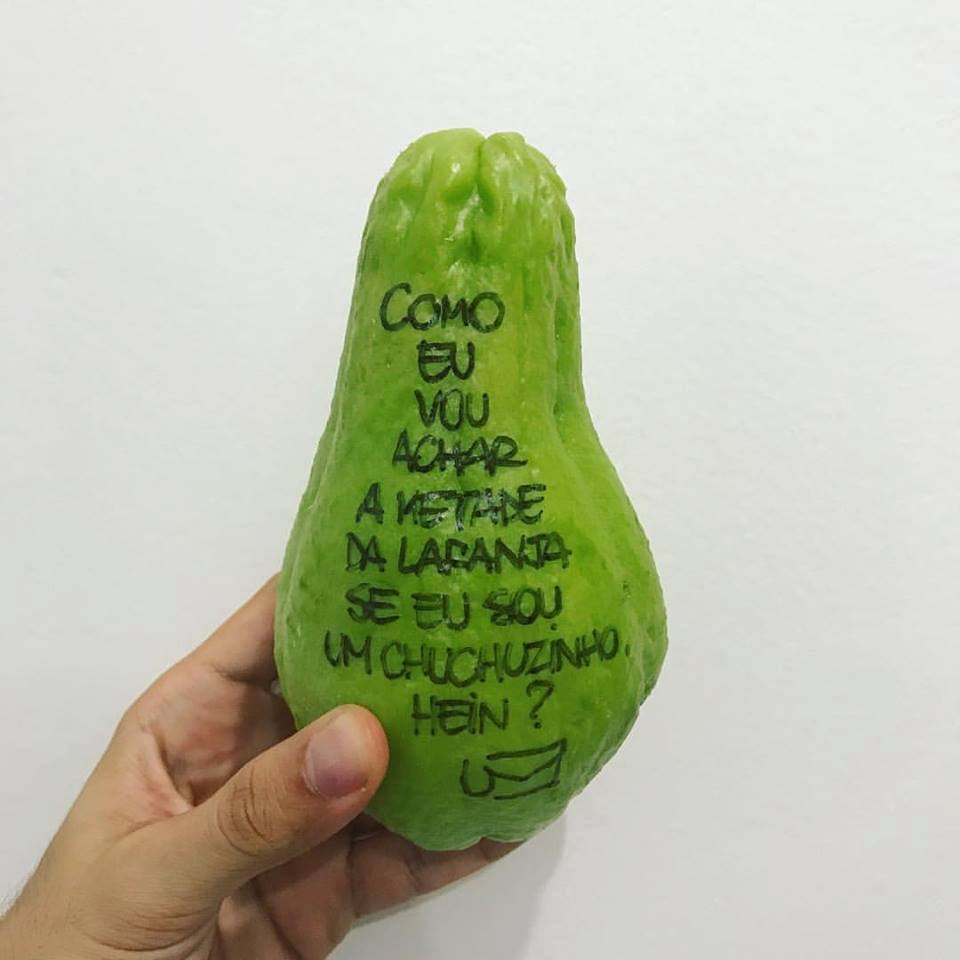 COMO
EU
VOU
ACHAR
A METADE
DA LARANJA
SE EU SOU
UM CHUCHUZINHO,
HEIN?